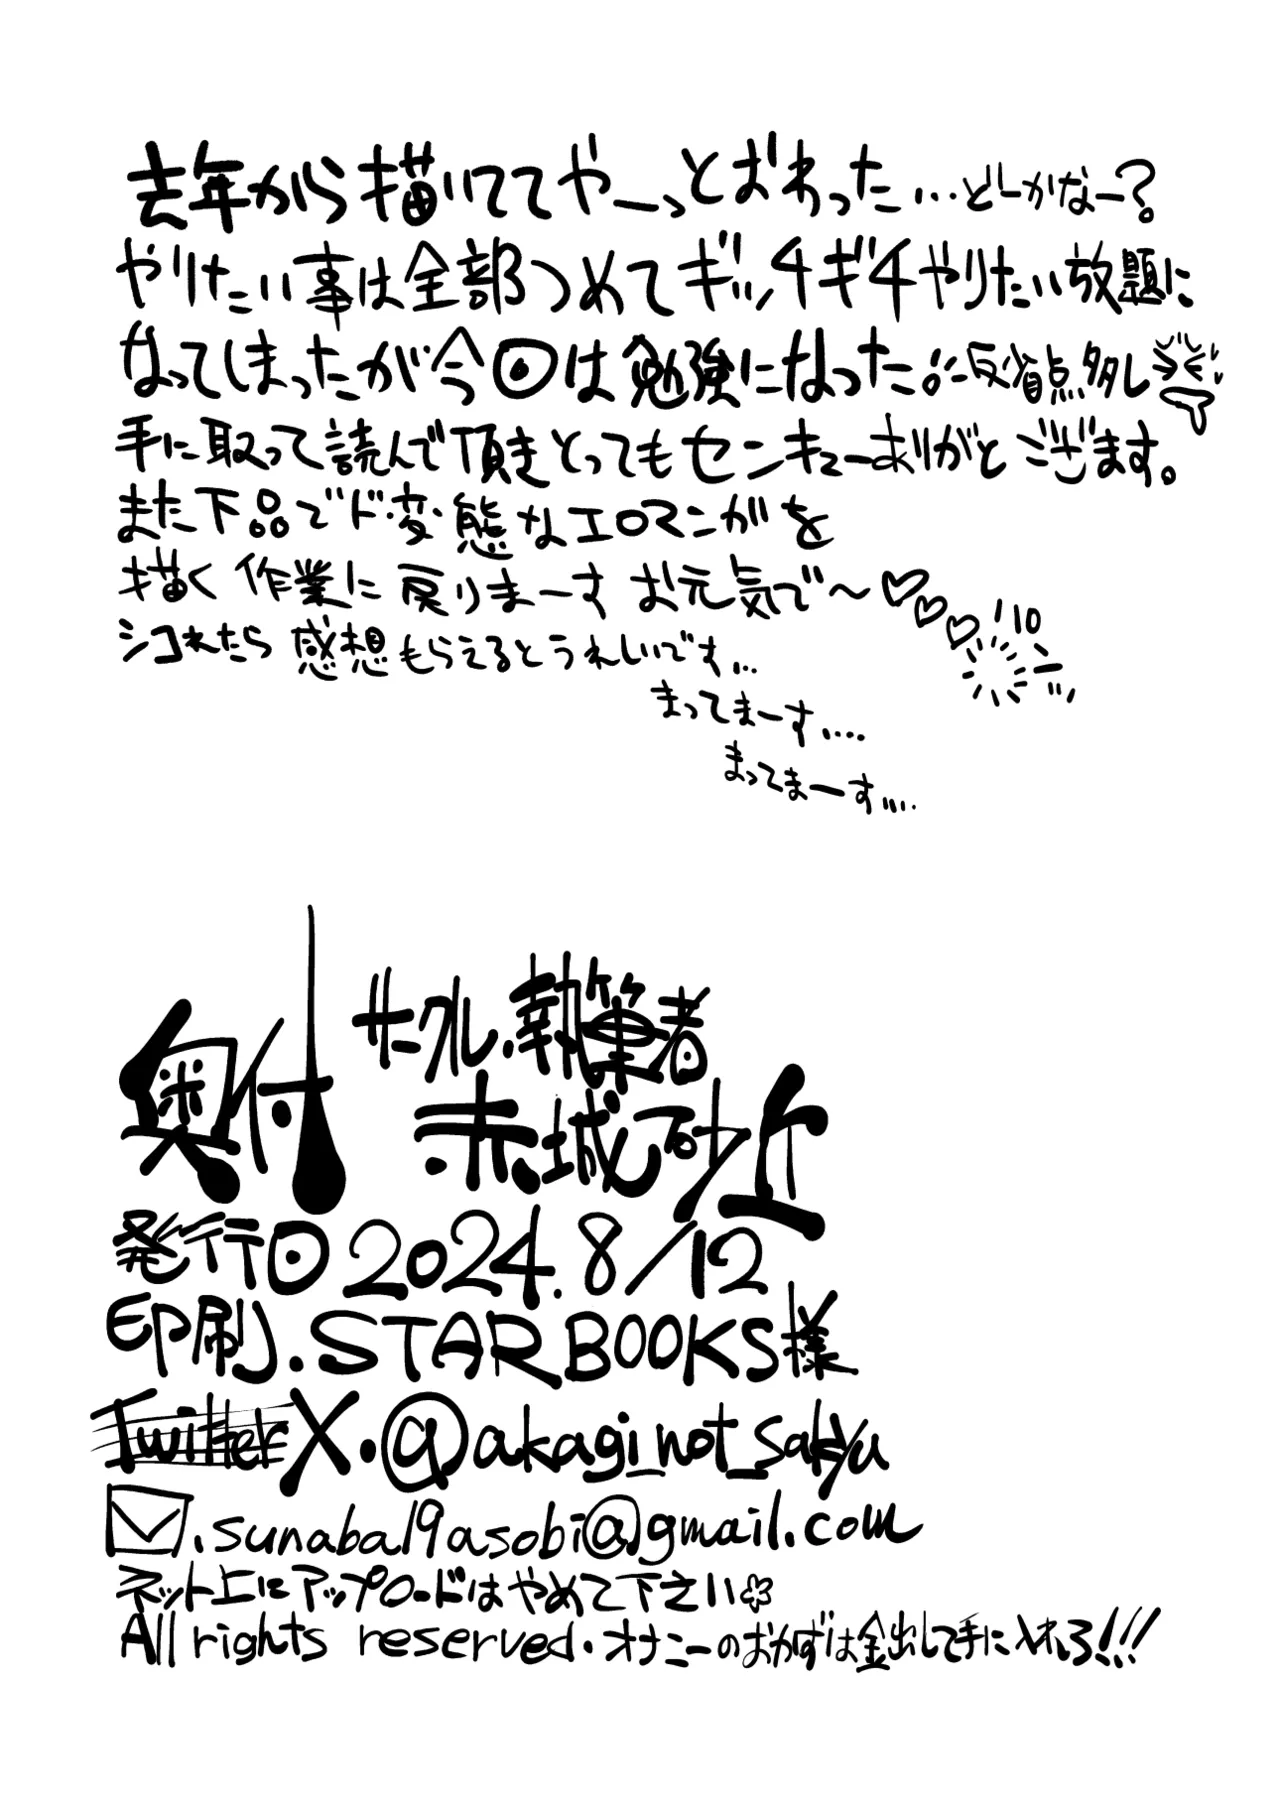 去年から描いててやーっとおわった…どーかなー?
やりたい事は全部つめてギッチギチやりたい放題に
なってしまったが今回は勉強になった!反省点多し
手に取って読んで頂きとってもセンキューありがとござます。
また下品でド変態なエロマンガを
描く作業に戻りまーす お元気で～♡♡♡
シコれたら 感想もらえるとうれしいです…
まってまーす….
まってまーす….
奥付
サークル・執筆者
赤城砂近
発行日 2024.8/12
印刷.STAR BOOKS様
Twitter X.@akagi_not_sakyu
.sunaba19asobi@gmail.com
ネット上にアップロードはやめて下さい
All rights reserved.オナニーのおかずは金出して手に入れろ!!!